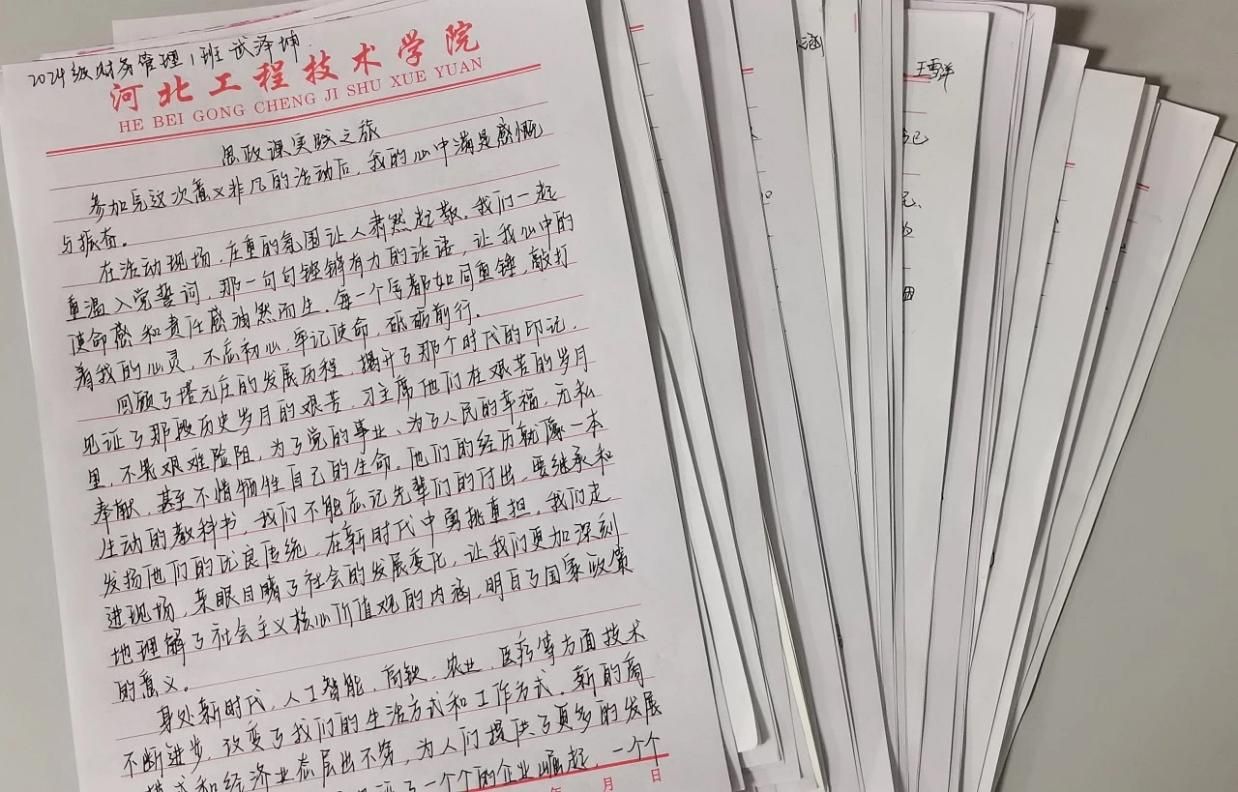 2024级财务管理1班 武泽坤
河北工程技术学院
HE BEI GONG CHENG JI SHU XUE YUAN
思政课实践之旅
参加完这次意义非凡的活动后，我的心中满是感慨
与振奋。
在活动现场，庄重的氛围让人肃然起敬。我们一起
重温入党誓词，那一句句铿锵有力的话语，让我心中的
使命感和责任感油然而生。每一个字都如同重锤，敲打
着我的心灵，不忘初心，牢记使命，砥砺前行。
回顾了塔元庄的发展历程，揭开了那个时代的印记，
见证了那段历史岁月的艰苦，习主席他们在艰苦的岁月
里，不畏艰难险阻，为了党的事业、为了人民的幸福，无私
奉献，甚至不惜牺牲自己的生命。他们的经历就像一本
生动的教科书，我们不能忘记先辈们的付出，要继承和
发扬他们的优良传统，在新时代中勇挑重担，我们走
进现场，亲眼目睹了社会的发展变化，让我们更加深刻
地理解了社会主义核心价值观的内涵，明白了国家政策
的意义。
身处新时代，人工智能，高铁，农业，医疗等方面技术
不断进步，改变了我们的生活方式和工作方式，新的商
模式和经济业态层出不穷，为人们提供了更多的发展
了一个个的企业崛起，一个个
年 月 日
涵
王雪洋
记